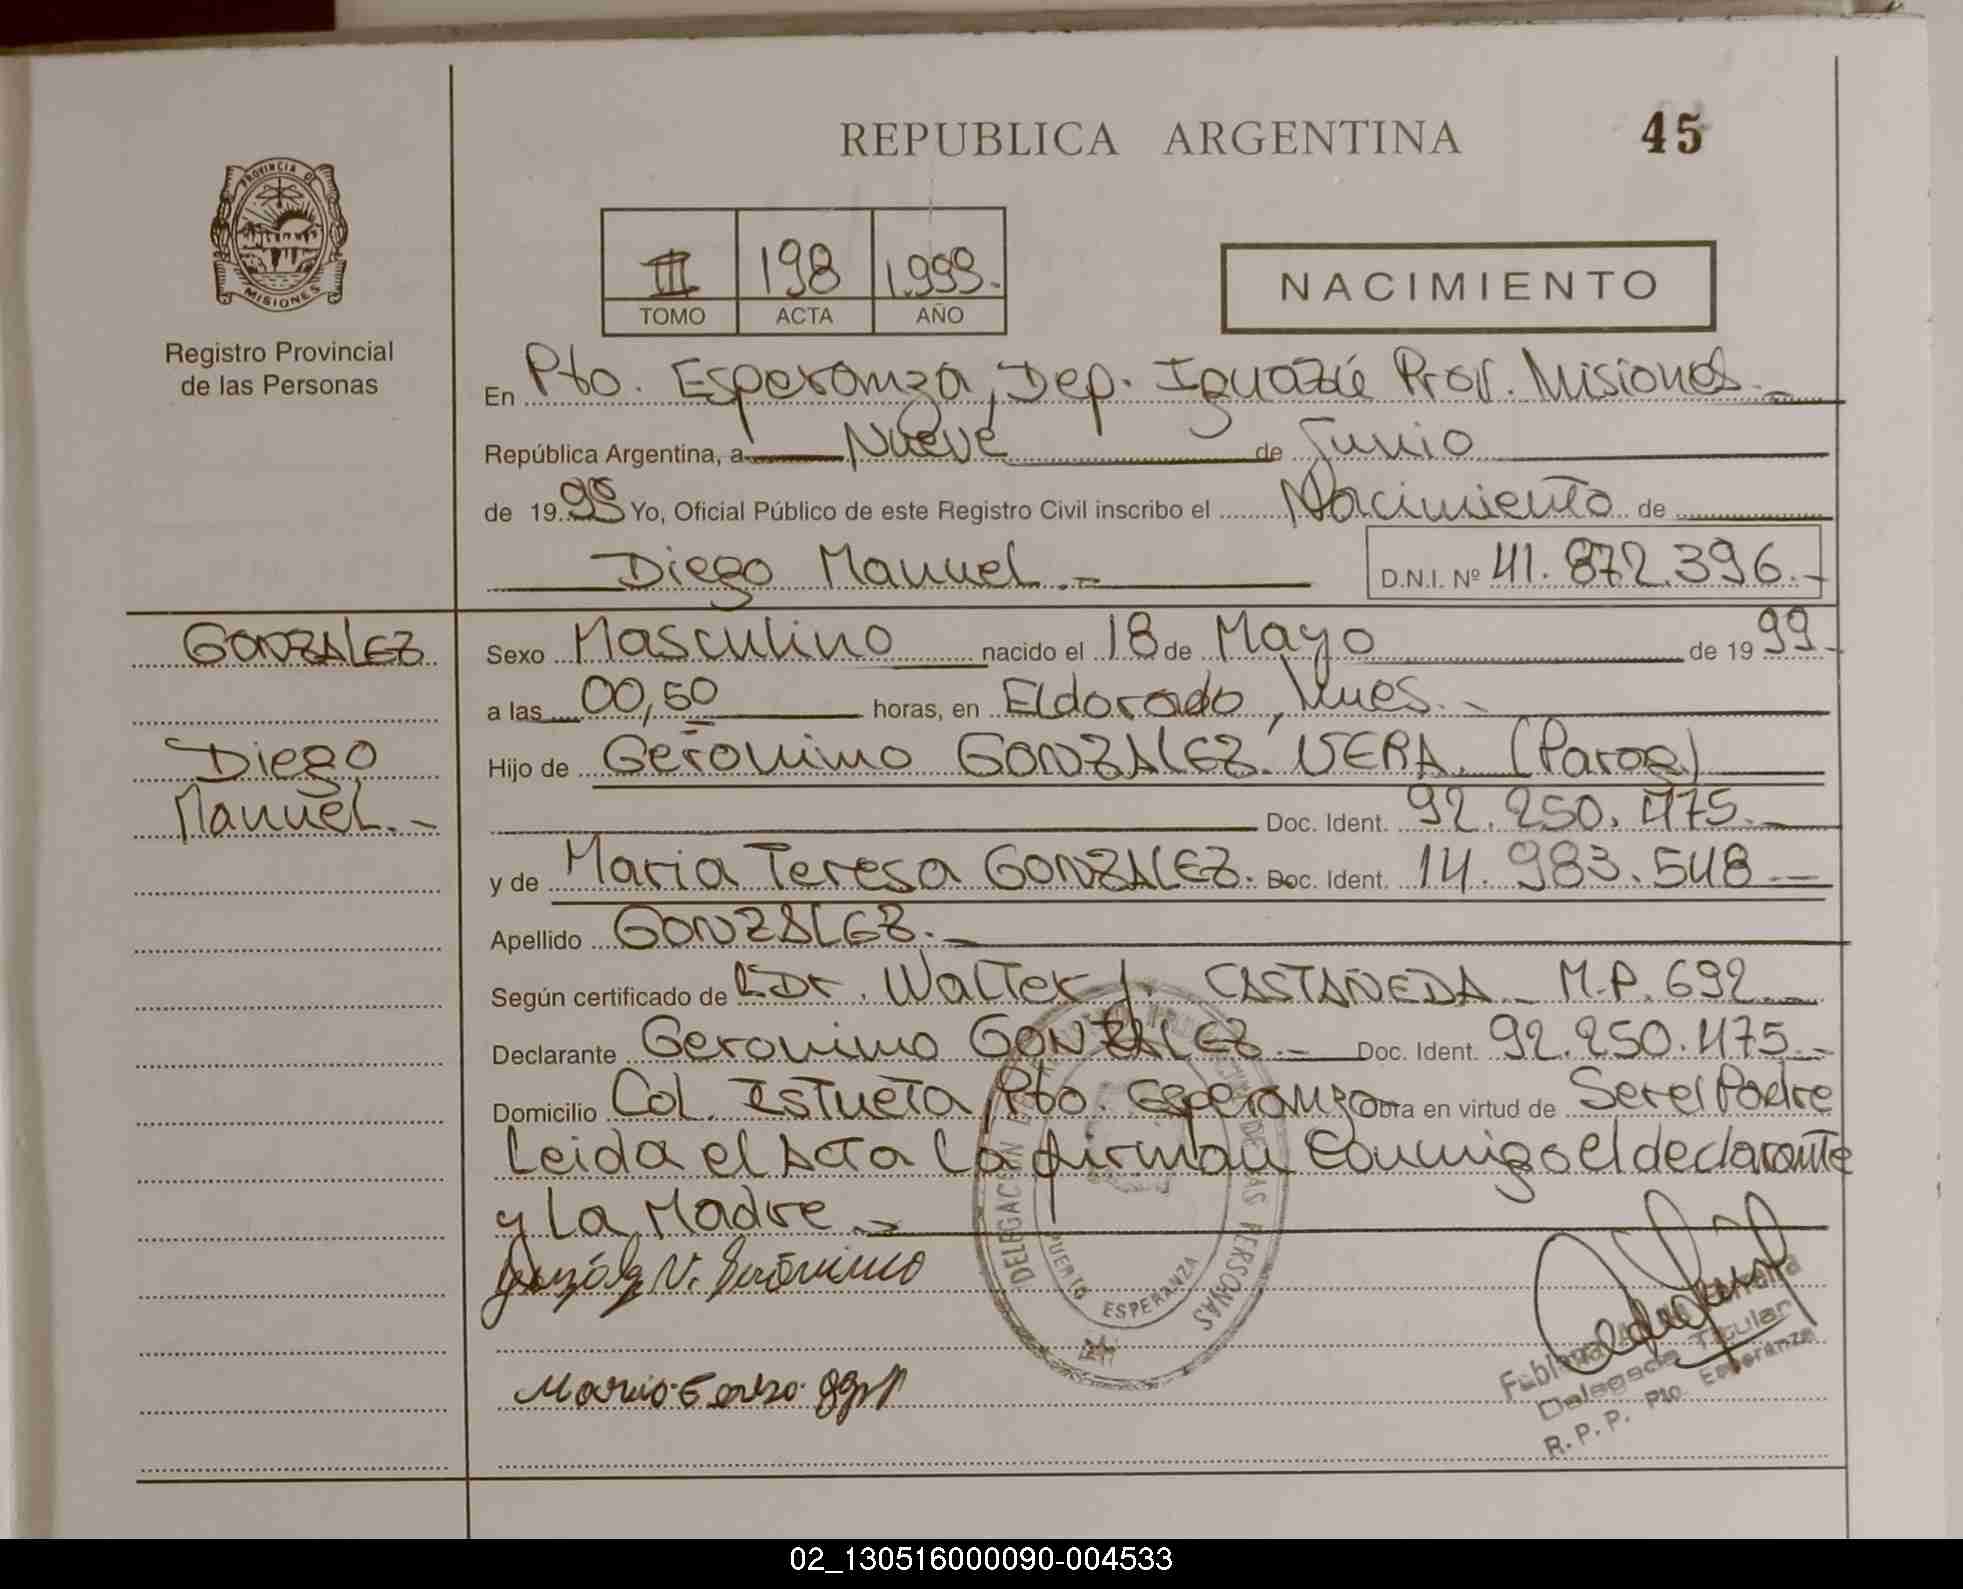 REPUBLICA ARGENTINA
45
PROVINCIA DE
MISIONES
Registro Provincial
de las Personas
III 198 1.999.
TOMO ACTA AÑO
NACIMIENTO
En Pto. Esperanza, Dep. Iguazú Prov. Misiones.
República Argentina, a Nueve de Junio
de 1999 Yo, Oficial Público de este Registro Civil inscribo el Nacimiento de
Diego Manuel.- D.N.I. Nº 41.872.396.-
GONZALEZ
Diego
Manuel.-
Sexo Masculino nacido el 18 de Mayo de 1999-
a las 00,50 horas, en Eldorado, Mnes.-
Hijo de Gerónimo GONZALEZ VERA. (Parag)
Doc. Ident. 92.250.475.-
y de Maria Teresa GONZALEZ. Doc. Ident. 14.983.548-
Apellido GONZALEZ.-
Según certificado de Dr. Walter J. CASTAÑEDA - M.P. 692
Declarante Geronimo GONZALEZ.- Doc. Ident. 92.250.475.-
Domicilio Col. Pto. Esperanza Obra en virtud de Ser el Padre
Leida el Acta la firman conmigo el declarante
y La Madre.-
DELEGACIÓN DE LAS PERSONAS
PUERTO ESPERANZA
Delegada Titular
R.P.P. Pto. Esperanza
02_130516000090-004533